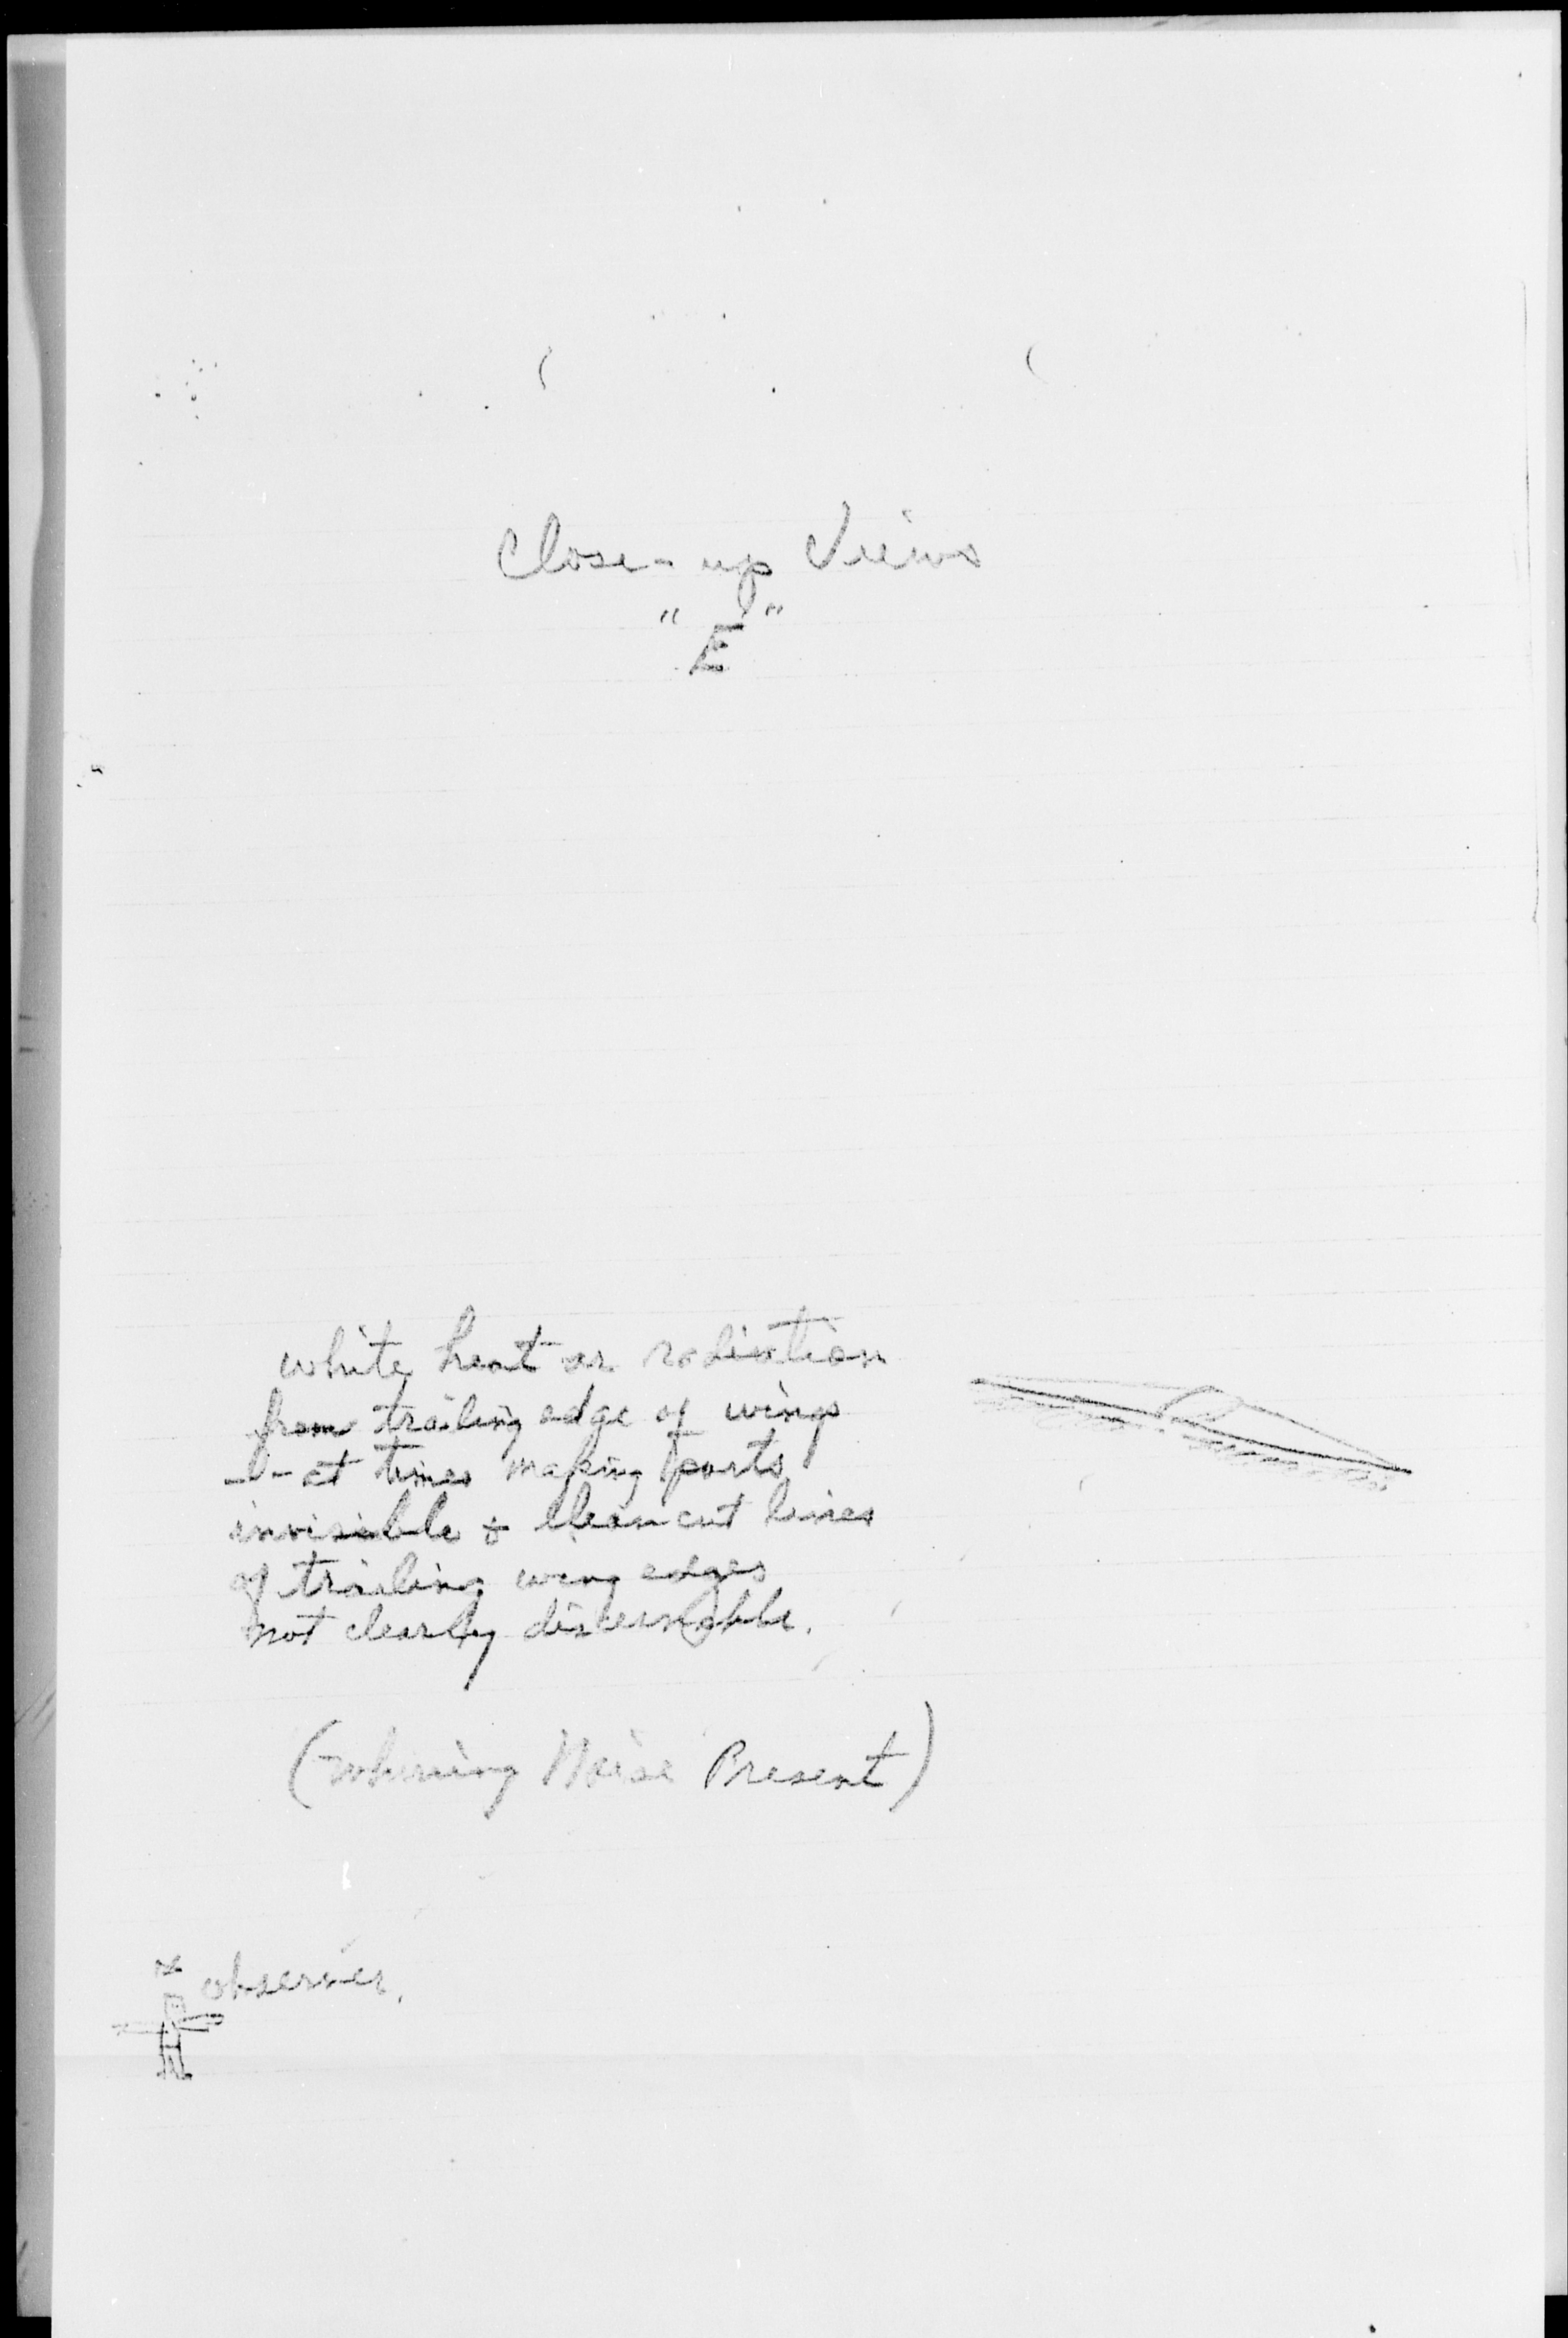 Close-up Views
"E"
white heat or radiation
from trailing edge of wings
--- at times making parts
invisible & clean cut lines
of trailing wing edges
not clearly discernable.
(Whirring Noise Present)
observer.